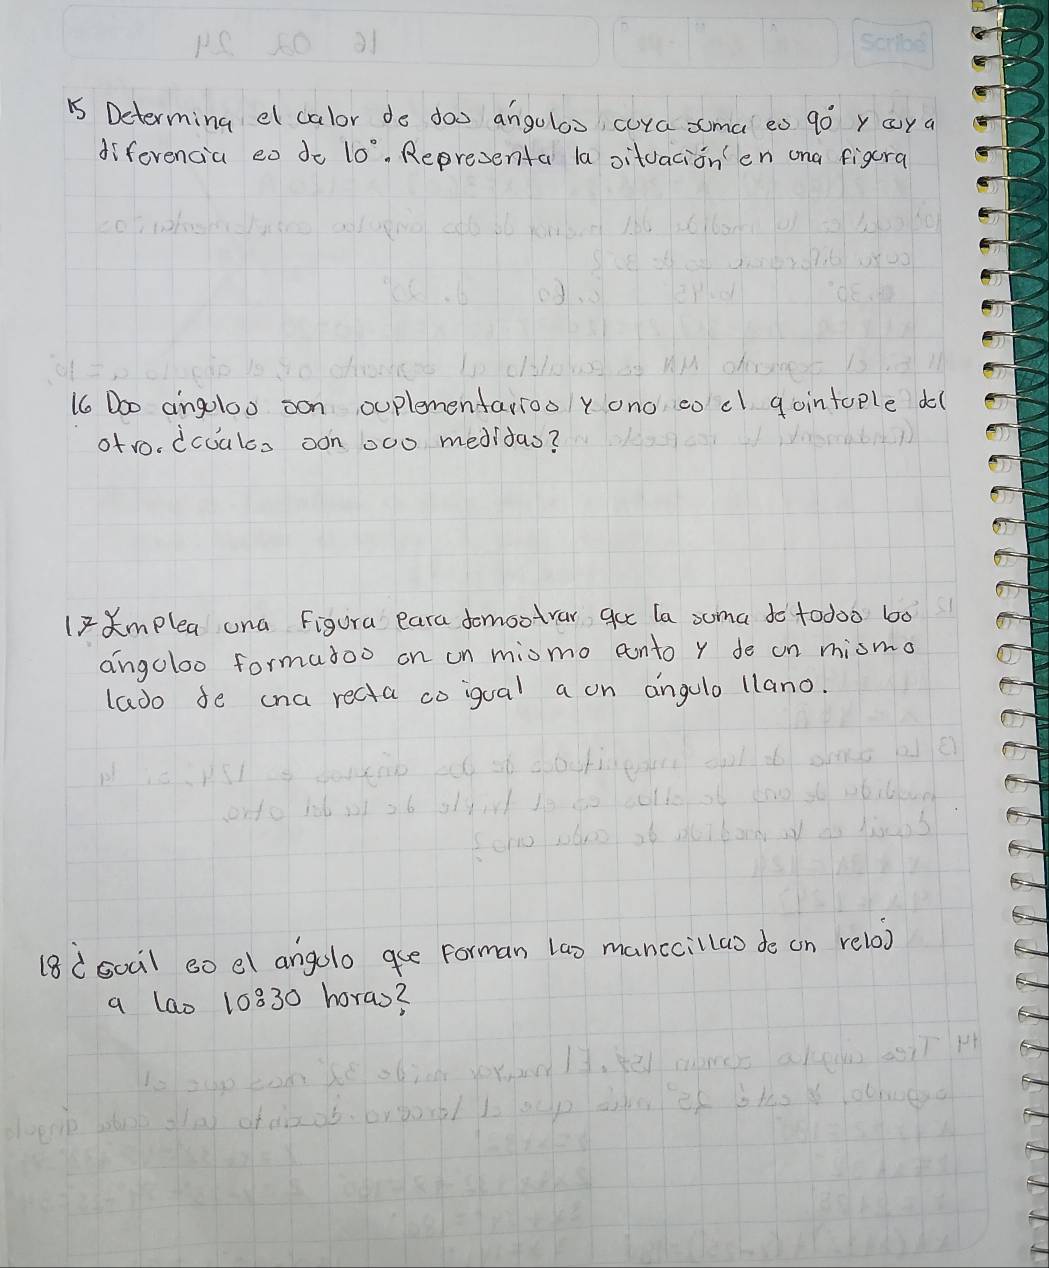 Scribe
15 Determina el calor de dos ángulos, cuya suma es 90° y cuya
diferencia es de 10°. Representa la situación en una figura
16 Dos ángulos son suplementarios y uno es el quintuple del
otro. ¿cuáles son sus medidas?
17 Emplea una figura para demostrar que la suma de todos los
ángulos formados en un mismo punto y de un mismo
lado de una recta es igual a un ángulo llano.
18 ¿cuál es el ángulo que forman las manecillas de un reloj
a las 10:30 horas?